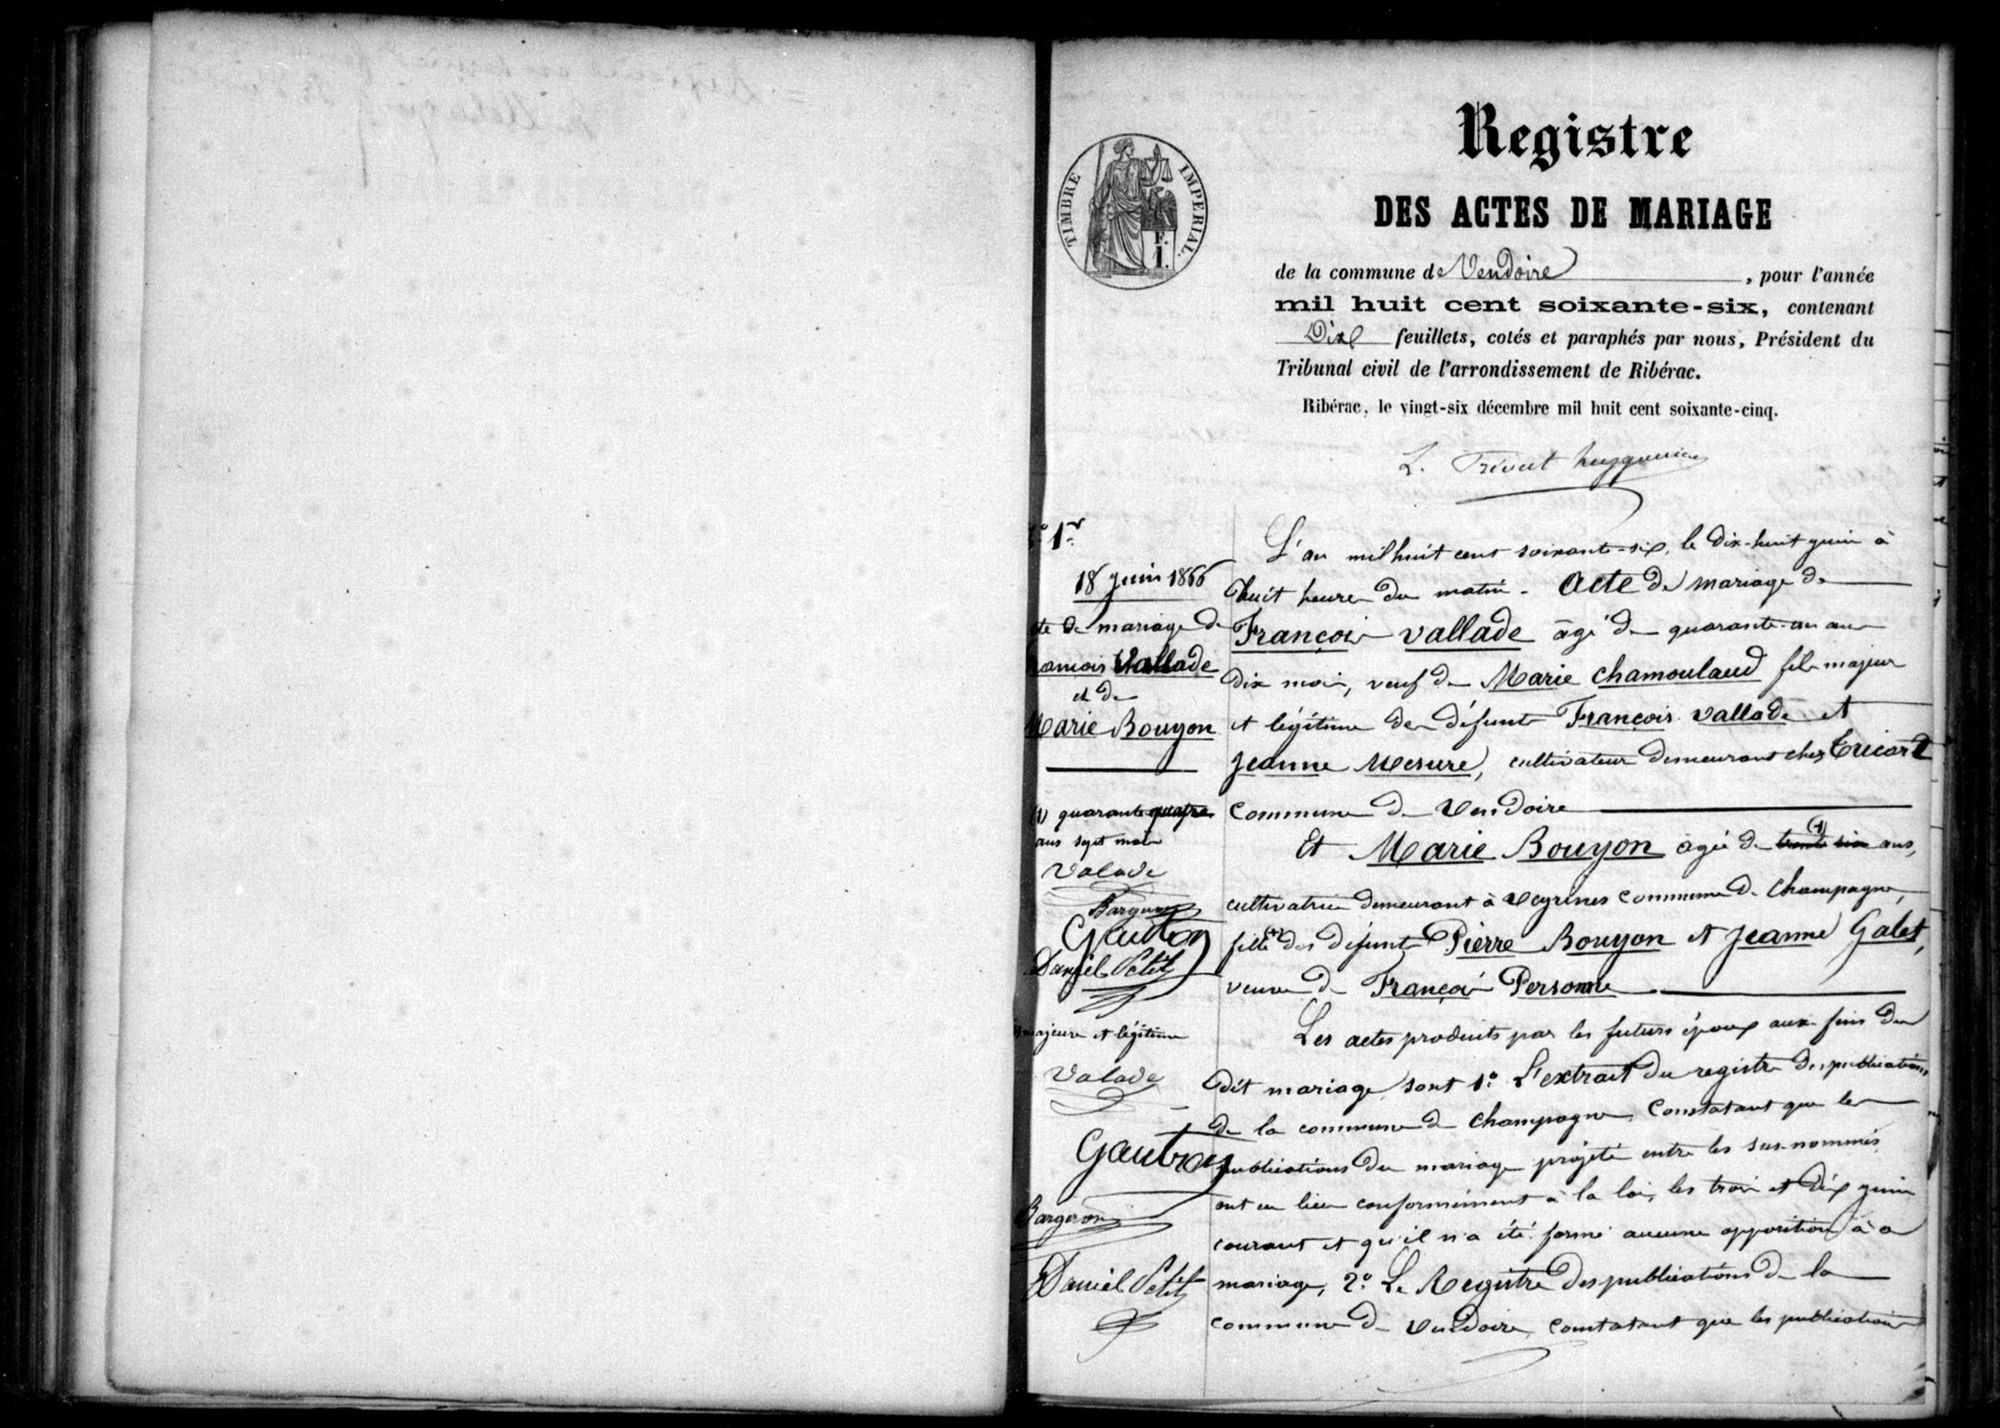 Registre
DES ACTES DE MARIAGE
TIMBRE IMPERIAL.
F.
I.
de la commune de Vendoire, pour l'année
mil huit cent soixante-six, contenant
Dix feuillets, cotés et paraphés par nous, Président du
Tribunal civil de l'arrondissement de Ribérac.
Ribérac, le vingt-six décembre mil huit cent soixante-cinq.
1er
18 juin 1866
te de mariage de
ancois Vallade
et de
Marie Bouyon
(1) quarante quatre
ans sept mois
Valade
Bargeron
Gautron
Daniel Petit
majeure et légitime
Valade
Bargeron
Daniel Petit
L'an mil huit cent soixante-six, le dix-huit juin à
huit heures du matin. Acte de mariage de
François Vallade âgé de quarante-un ans
dix mois, veuf de Marie Chamoulaud fils majeur
et légitime des défunts François Vallade et
Jeanne Mesure, cultivateur demeurant chez Tricard
commune de Vendoire
Et Marie Bouyon âgée de trente six (1) ans,
cultivatrice demeurant à Veyrines commune de Champagne,
fille des défunts Pierre Bouyon et Jeanne Galet,
veuve de François Personne
Les actes produits par les futurs époux aux fins du
dit mariage sont 1º L'extrait du registre des publications
de la commune de Champagne, constatant que les
publications du mariage projeté entre les sus-nommés
ont eu lieu conformément à la loi, les trois et dix juin
courant et qu'il n'a été formé aucune opposition à ce
mariage, 2º Le Registre des publications de la
commune de Vendoire, constatant que les publications